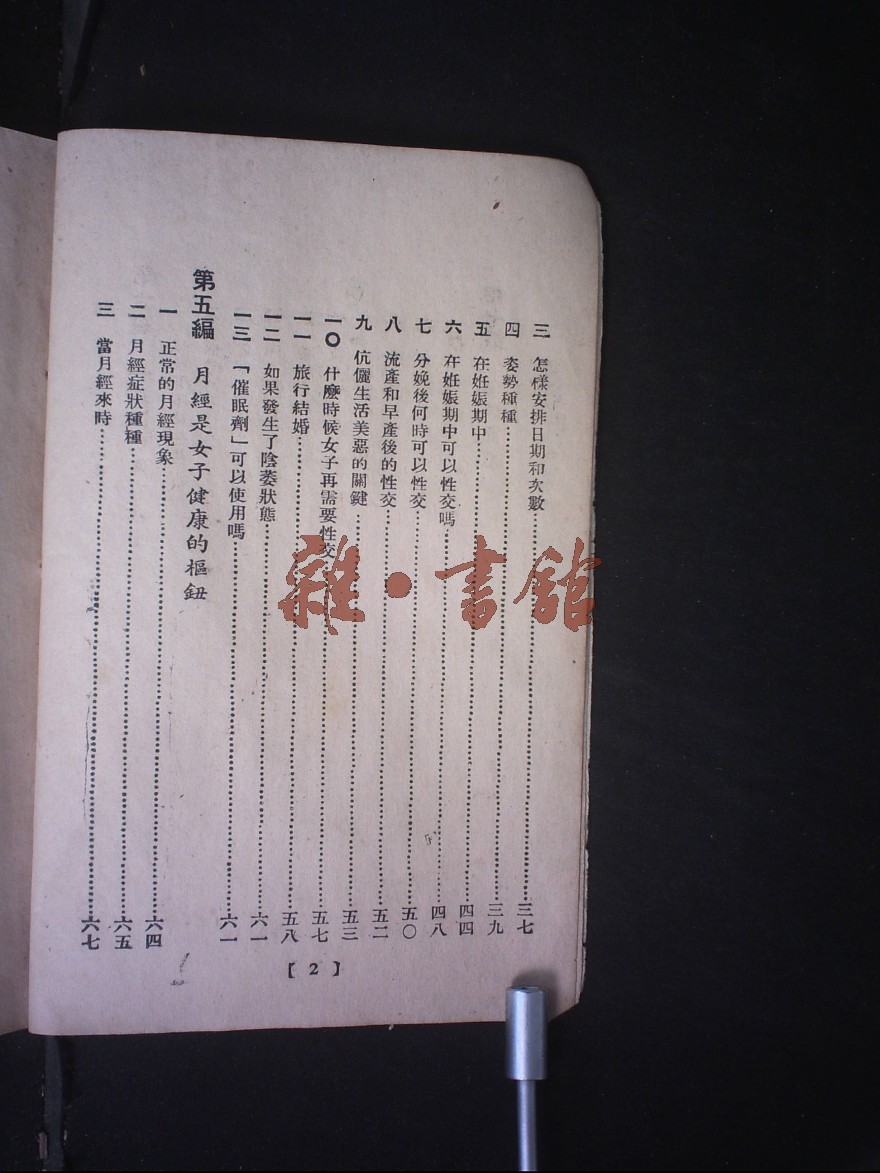 三 怎樣安排日期和次數……三七
四 姿勢種種……三九
五 在姙娠期中……四四
六 在姙娠期中可以性交嗎……四八
七 分娩後何時可以性交……五〇
八 流產和早產後的性交……五二
九 伉儷生活美惡的關鍵……五三
一〇 什麼時候女子再需要性交……五七
一一 旅行結婚……五八
一二 如果發生了陰萎狀態……六一
一三 「催眠劑」可以使用嗎……六一
第五編 月經是女子健康的樞鈕
一 正常的月經現象……六四
二 月經症狀種種……六五
三 當月經來時……六七
【2】
雜·書館